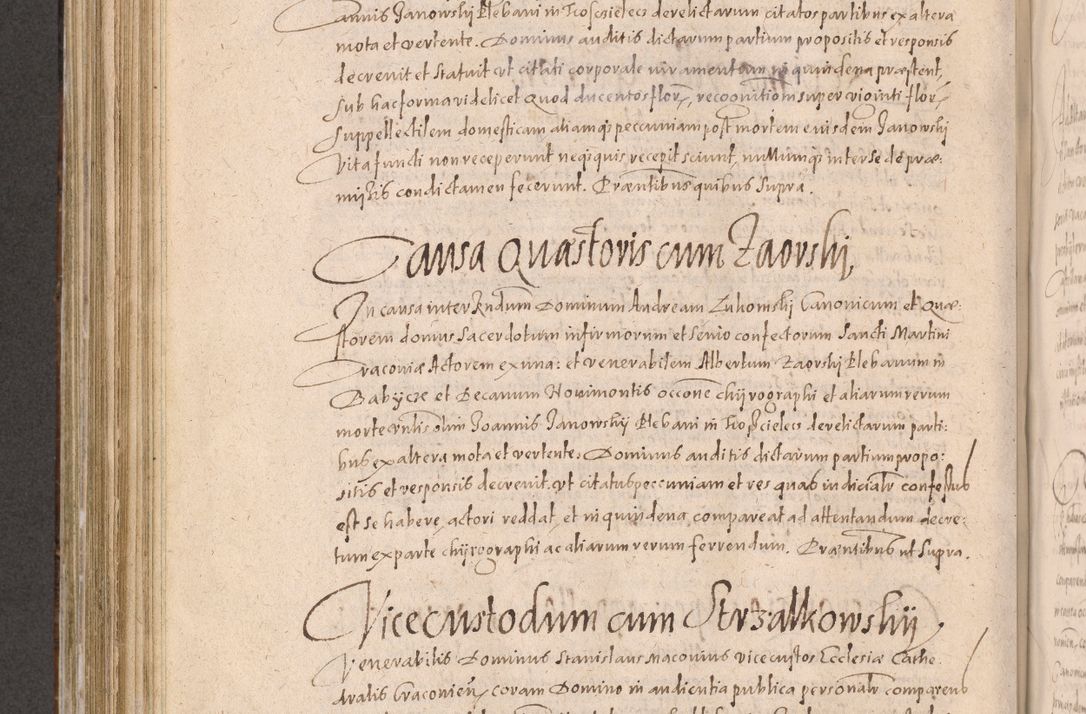 Joannis Janowskj Plebani in Troscielecz derelictarum citatos partibus ex altera
mota et vertente. Dominus auditis dictarum partium propositis et responsis
decrevit et statuit ut citati corporale iuramentum in quindena præstent,
sub hac forma videlicet Quod ducentos flor, recognitiom super viginti flor,
suppellectilem domesticam aliamq; peccuniam post mortem eiusdem Janowskj
vita functi non receperunt neq; quis recepit sciunt, nullumq; inter se de præ:
missis condictamen fecerunt. Præntibus quibus supra.
Causa Quæstoris cum Zaorskj,
In causa inter Rndum Dominum Andream Lukomskj Canonicum et Quæ:
storem domus Sacerdotum infirmorum et senio confectorum Sancti Martini
Cracoviæ Actorem ex una: et venerabilem Albertum Zaorskj Plebanum in
Babycze et Decanum Novimontis occone chyrographi et aliarum rerum
morte olim Joannis Janowskij Plebani in Troscielecz derelictarum parti:
bus ex altera mota et vertente. Dominus auditis dictarum partium propo:
sitis et responsis decrevit, ut citatus peccuniam et res quas iudicialr confessus
est se habere, actori reddat, et in quindena compareat ad attentandum decre:
tum ex parte chyrographi ac aliarum rerum ferrendum. Præntibus ut supra.
Vicecustodum cum Strzalkowskij
Venerabilis Dominus Stanislaus Maconius vicecustos Ecclesiæ Cathe
dralis Cracovien, coram Domino in audientia publica personalr comparens